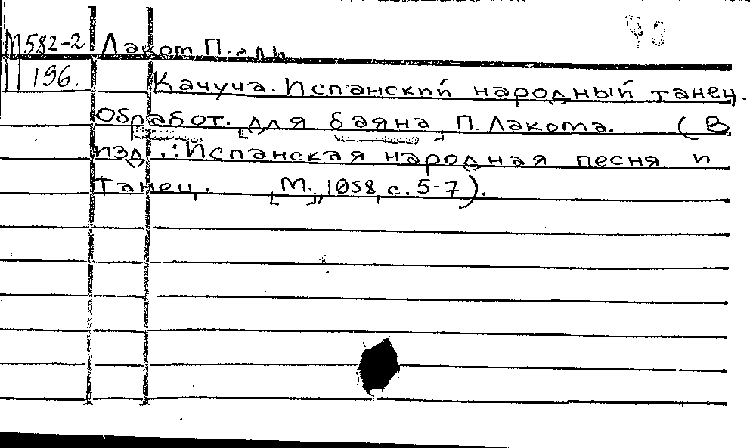 М582-2 Лакот П.
196. Качуча. Испанский народный танец.
Обработ. для баяна П. Лакота. (В
изд.: Испанская народная песня и
танец. М., 1958, с. 5-7).